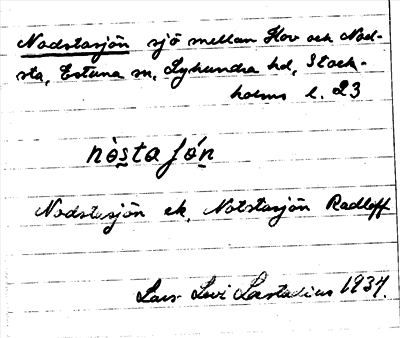 Nodstasjön sjö mellan Hov och Nod-
sta, Estuna sn, Lyhundra hd, Stock-
holms l. 23
nòsta ʃǿn
Nodstasjön ek, Notstasjön Radloff
Lars-Levi Læstadius 1937.